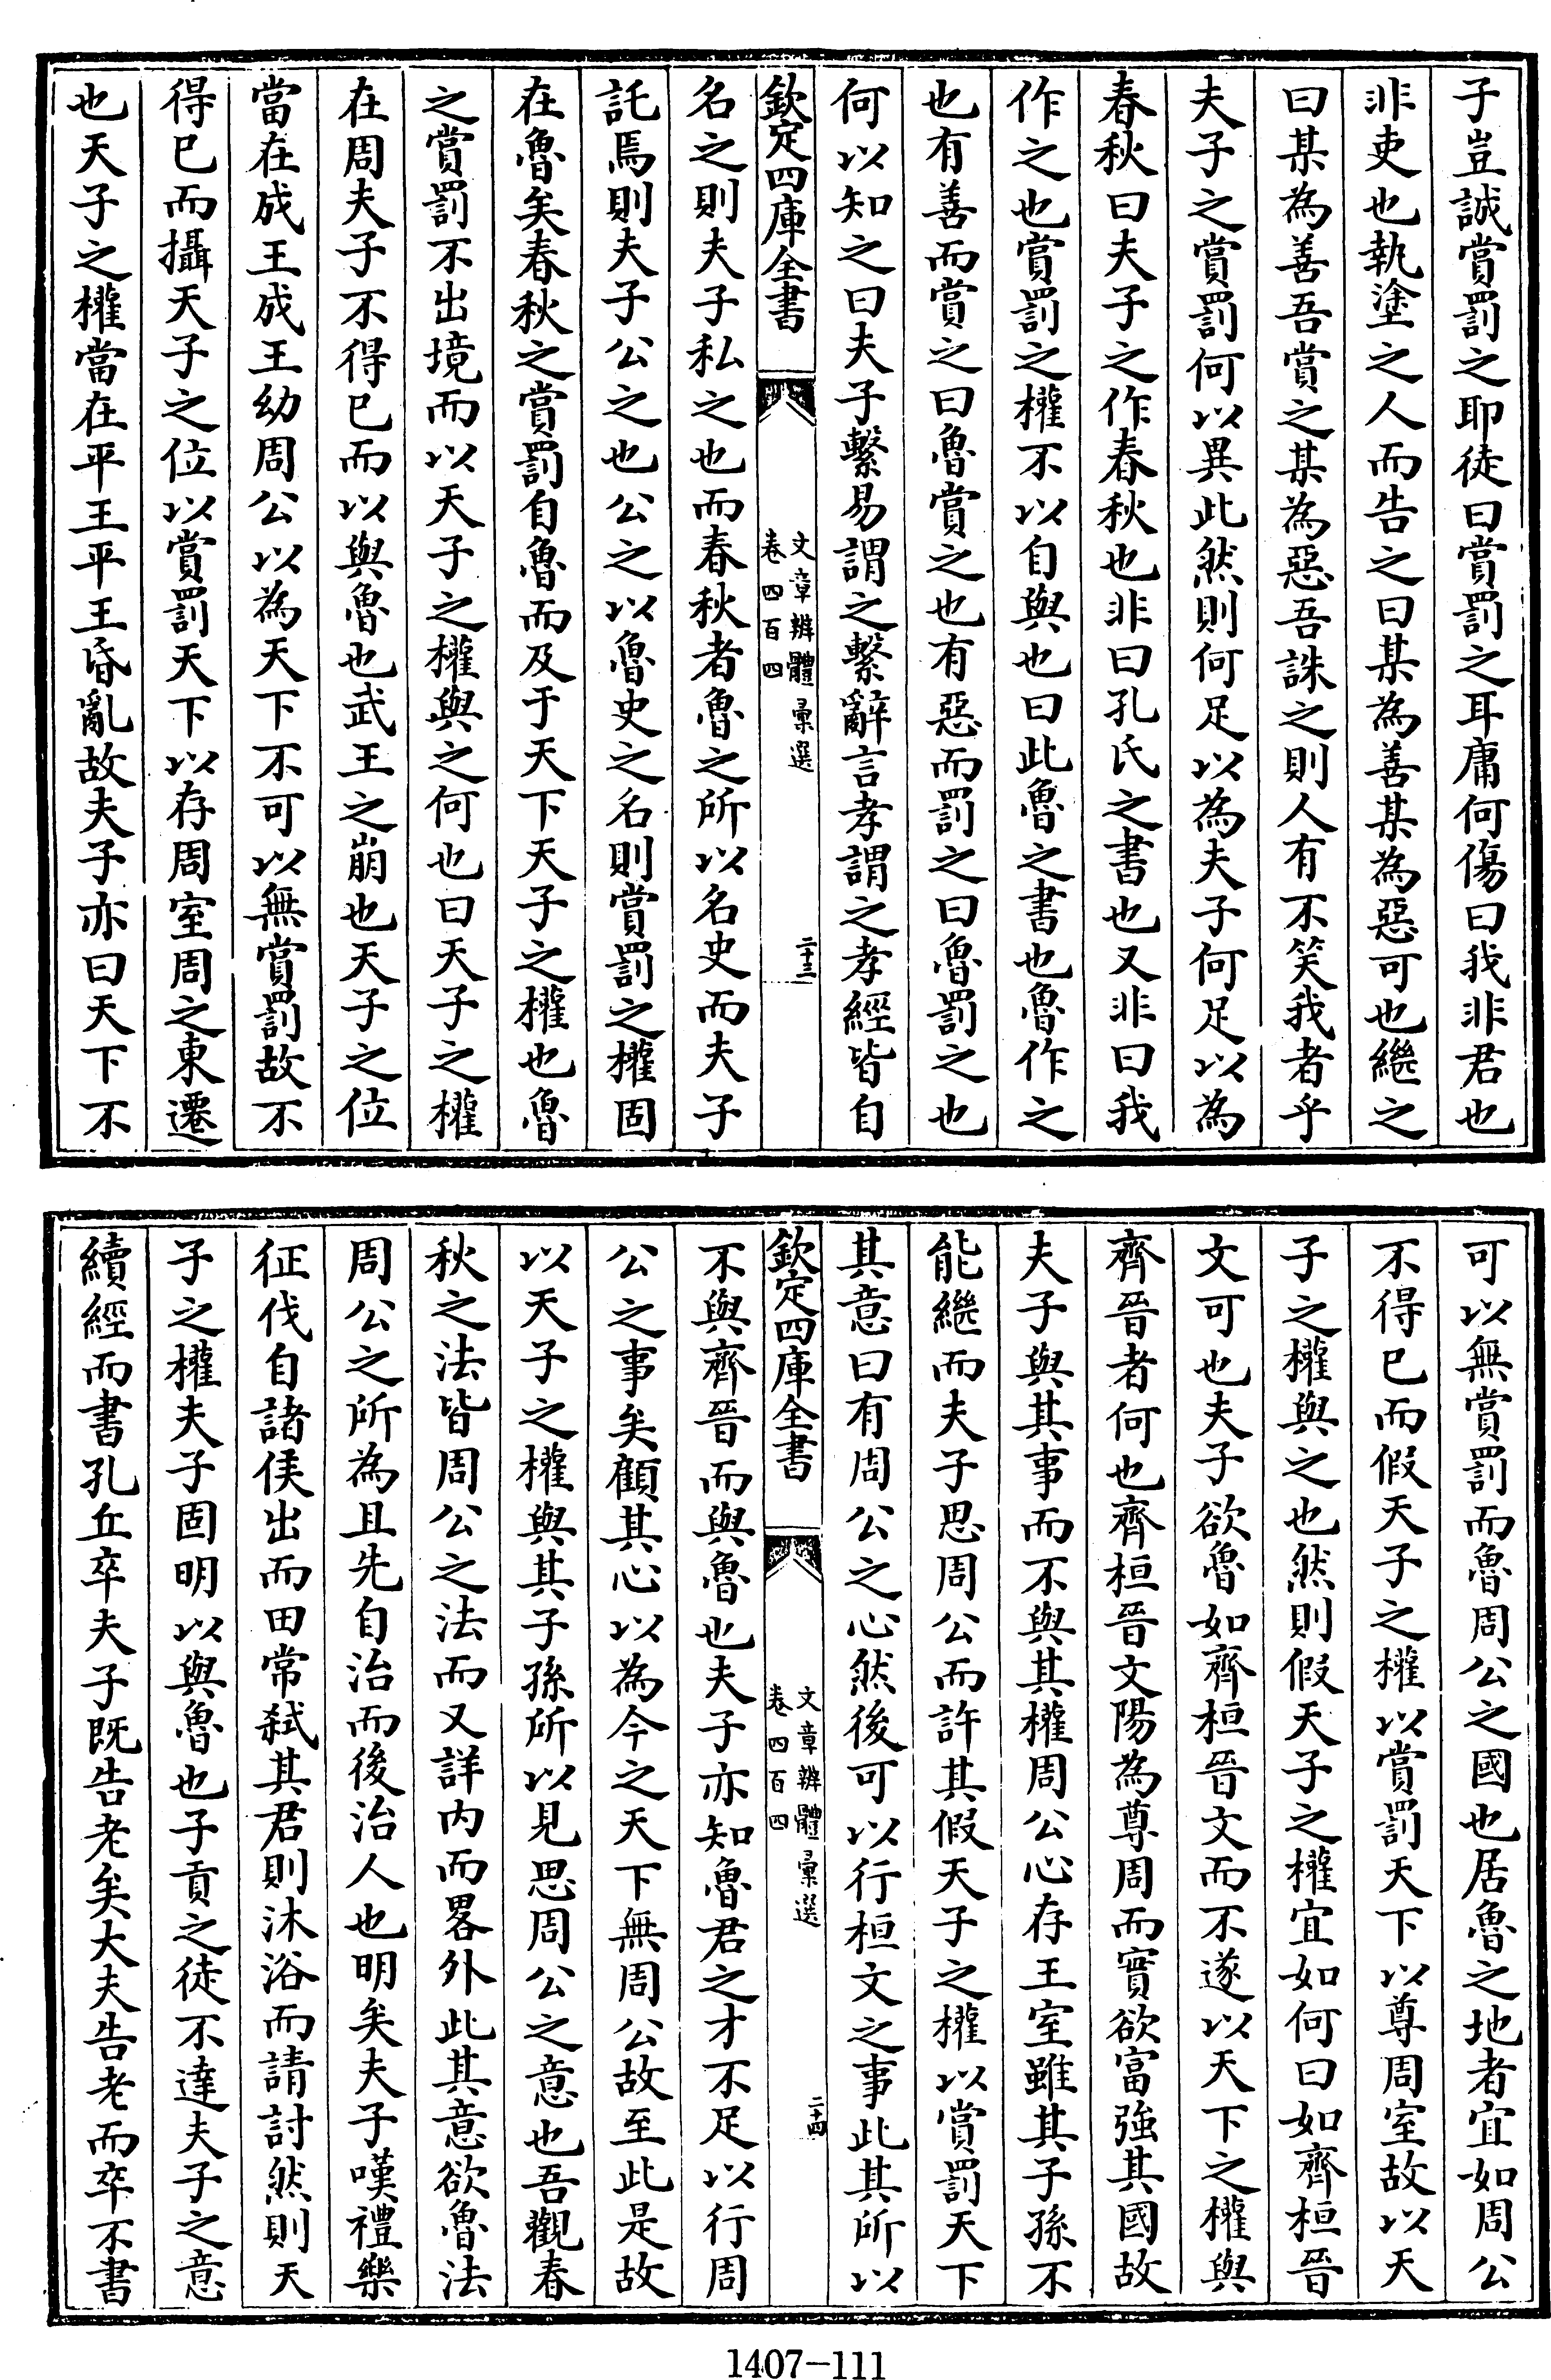 子豈誠賞罰之耶徒曰賞罰之耳庸何傷曰我非君也
非吏也執塗之人而告之曰某為善某為惡可也繼之
曰某為善吾賞之某為惡吾誅之則人有不笑我者乎
夫子之賞罰何以異此然則何足以為夫子何足以為
春秋曰夫子之作春秋也非曰孔氏之書也又非曰我
作之也賞罰之權不以自與也曰此魯之書也魯作之
也有善而賞之曰魯賞之也有惡而罰之曰魯罰之也
何以知之曰夫子繫易謂之繫辭言孝謂之孝經皆自
欽定四庫全書
文章辨體彙選
卷四百四
二十三
名之則夫子私之也而春秋者魯之所以名史而夫子
託焉則夫子公之也公之以魯史之名則賞罰之權固
在魯矣春秋之賞罰自魯而及于天下天子之權也魯
之賞罰不出境而以天子之權與之何也曰天子之權
在周夫子不得已而以與魯也武王之崩也天子之位
當在成王成王幼周公以為天下不可以無賞罰故不
得已而攝天子之位以賞罰天下以存周室周之東遷
也天子之權當在平王平王昏亂故夫子亦曰天下不
可以無賞罰而魯周公之國也居魯之地者宜如周公
不得已而假天子之權以賞罰天下以尊周室故以天
子之權與之也然則假天子之權宜如何曰如齊桓晉
文可也夫子欲魯如齊桓晉文而不遂以天下之權與
齊晉者何也齊桓晉文陽為尊周而實欲富強其國故
夫子與其事而不與其權周公心存王室雖其子孫不
能繼而夫子思周公而許其假天子之權以賞罰天下
其意曰有周公之心然後可以行桓文之事此其所以
欽定四庫全書
文章辨體彙選
卷四百四
二十四
不與齊晉而與魯也夫子亦知魯君之才不足以行周
公之事矣顧其心以為今之天下無周公故至此是故
以天子之權與其子孫所以見思周公之意也吾觀春
秋之法皆周公之法而又詳內而畧外此其意欲魯法
周公之所為且先自治而後治人也明矣夫子嘆禮樂
征伐自諸侯出而田常弑其君則沐浴而請討然則天
子之權夫子固明以與魯也子貢之徒不達夫子之意
續經而書孔丘卒夫子既告老矣大夫告老而卒不書
1407-111